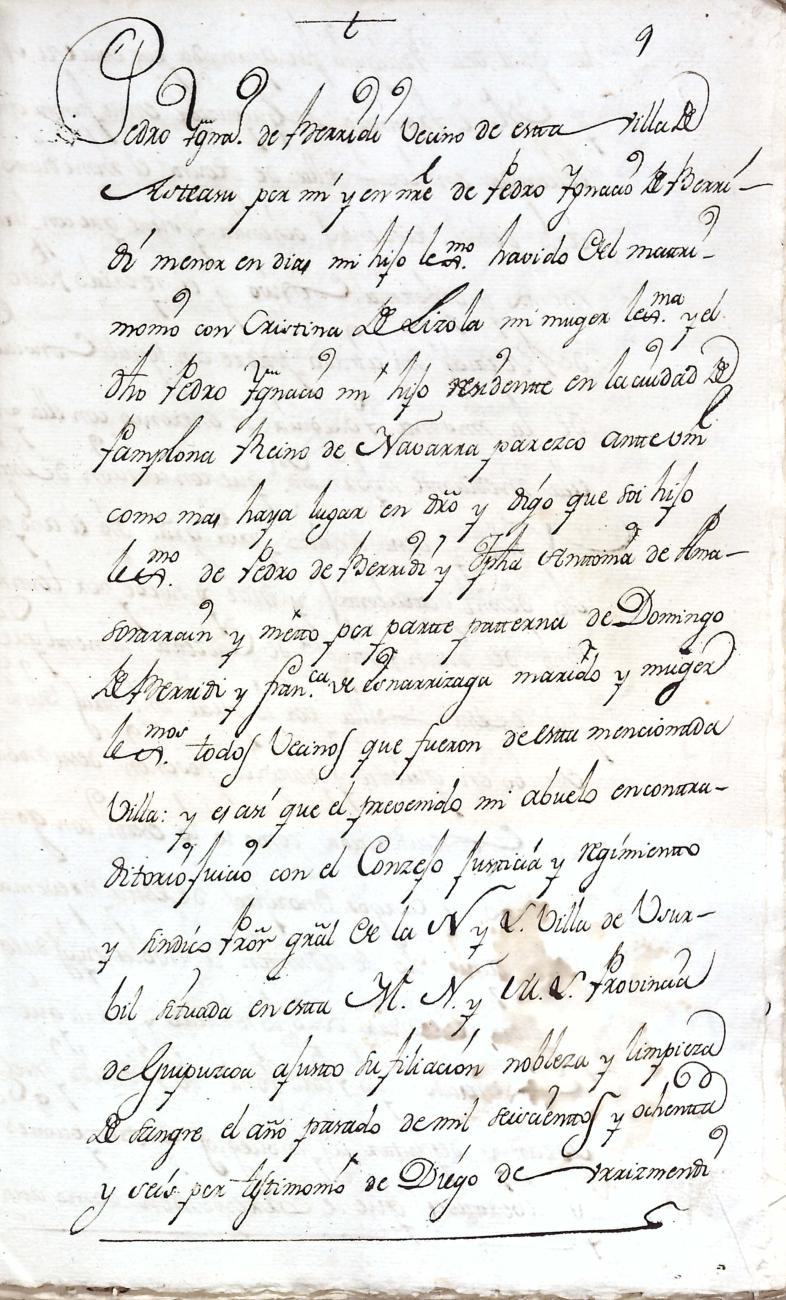 t
9
Pedro Ygnaº. de Berridi Vecino de estta Villa de
Asteasu por mi y en nre de Pedro Ygnacio de Berri-
di menor en dias mi hijo lexmo. havido del mattri-
monio con Cristina de Lizola mi muger lexma. y el
dho Pedro Ygnacio mi hijo residentte en la ciudad de
Pamplona Reino de Navarra parezco antte vm
como mas haya lugar en dro y digo que soi hijo
lexmo. de Pedro de Berridi y Antonia de Ama-
sorrarrain y nietto por partte patterna de Domingo
de Berridi y Franca. de marido y muger
lexmos. todos Vecinos que fueron de estta mencionada
Villa: y es asi que el prevenido mi abuelo en conttra-
dittorio juicio con el Conzejo justticia y regimientto
y sindico Pror gral de la N. y L. Villa de Usur-
bil situada en estta M. N. y M. L. Provincia
de Guipuzcoa ajustto su filiación nobleza y limpieza
de sangre el año pasado de mil seiscientos y ochentta
y seis por testimonio de Diego de Arrizmendi